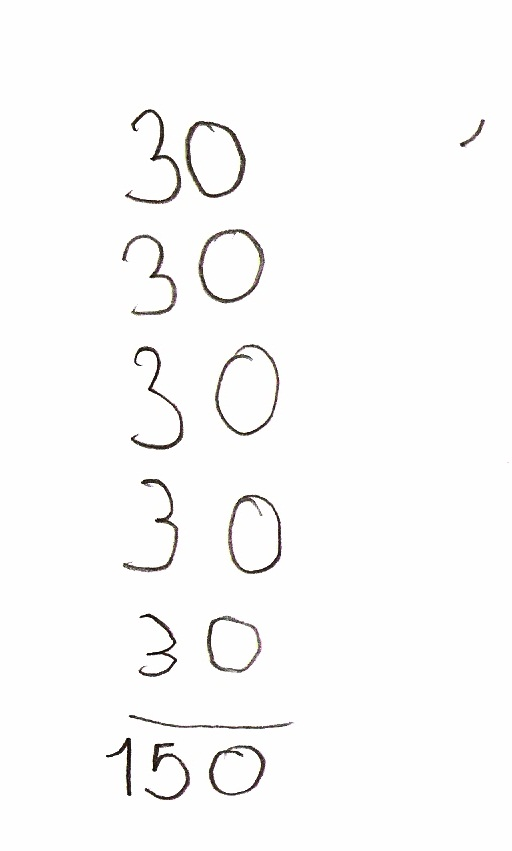 30
30
30
30
30
150